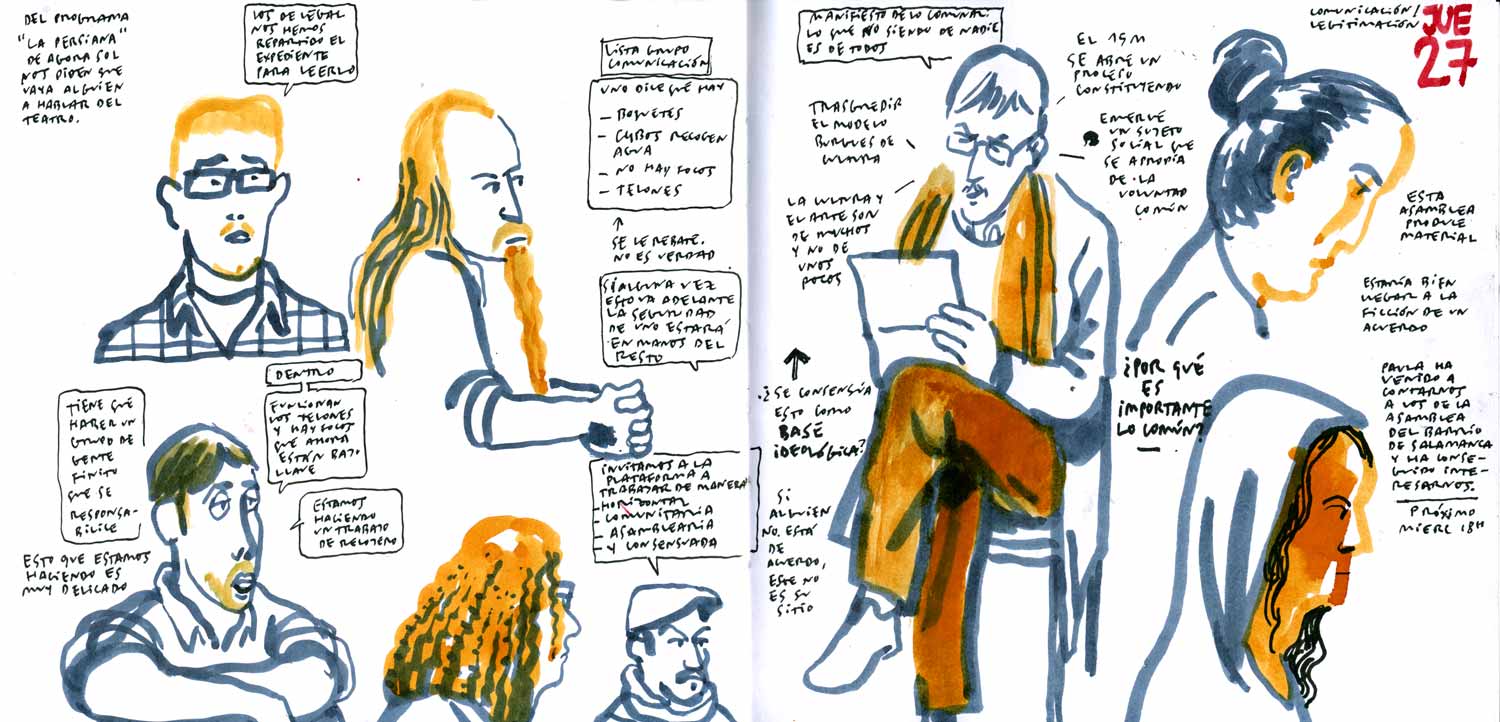 DEL PROGRAMA
"LA PERSIANA"
DE AGORA SOL
NOS PIDEN QUE
VAYA ALGUIEN
A HABLAR DEL
TEATRO.
LOS DE LEGAL
NOS HEMOS
REPARTIDO EL
EXPEDIENTE
PARA LEERLO
LISTA GRUPO
COMUNICACIÓN
UNO DICE QUE HAY
— BOQUETES
— CUBOS RECOGEN
AGUA
— NO HAY FOCOS
— TELONES
SE LE REBATE.
NO ES VERDAD
SI ALGUNA VEZ
ESTO VA ADELANTE
LA SEGURIDAD
DE UNO ESTARÁ
EN MANOS DEL
RESTO
TIENE QUE
HABER UN
GRUPO DE
GENTE
FINITO
QUE SE
RESPONSA-
BILICE
DENTRO
FUNCIONAN
LOS TELONES
Y HAY FOCOS
QUE AHORA
ESTÁN BAJO
LLAVE
ESTAMOS
HACIENDO
UN TRABAJO
DE RELOJERO
ESTO QUE ESTAMOS
HACIENDO ES
MUY DELICADO
INVITAMOS A LA
PLATAFORMA A
TRABAJAR DE MANERA
— HORIZONTAL
— COMUNITARIA
— ASAMBLEARIA
— Y CONSENSUADA
MANIFIESTO DE LO COMUNAL.
LO QUE NO SIENDO DE NADIE
ES DE TODOS
TRASGREDIR
EL MODELO
BURGUES DE
CULTURA
LA CULTURA Y
EL ARTE SON
DE MUCHOS
Y NO DE
UNOS
POCOS
EL 15M
SE ABRE UN
PROCESO
CONSTITUYENDO
EMERGE
UN SUJETO
SOCIAL QUE
SE APROPIA
DE LA
VOLUNTAD
COMÚN
¿SE CONSENSÚA
ESTO COMO
BASE
IDEOLÓGICA?
SI
ALGUIEN
NO ESTÁ
DE
ACUERDO,
ESTE NO
ES SU
SITIO
¿POR QUÉ
ES
IMPORTANTE
LO COMÚN?
COMUNICACIÓN/
LEGITIMACIÓN
JUE
27
ESTA
ASAMBLEA
PRODUCE
MATERIAL
ESTARÍA BIEN
LLEGAR A LA
FICCIÓN DE UN
ACUERDO
PAULA HA
VENIDO A
CONTARNOS
A LOS DE LA
ASAMBLEA
DEL BARRIO
DE SALAMANCA
Y HA CONSE-
GUIDO INTE-
RESARNOS.
PRÓXIMO
MIERC 18H